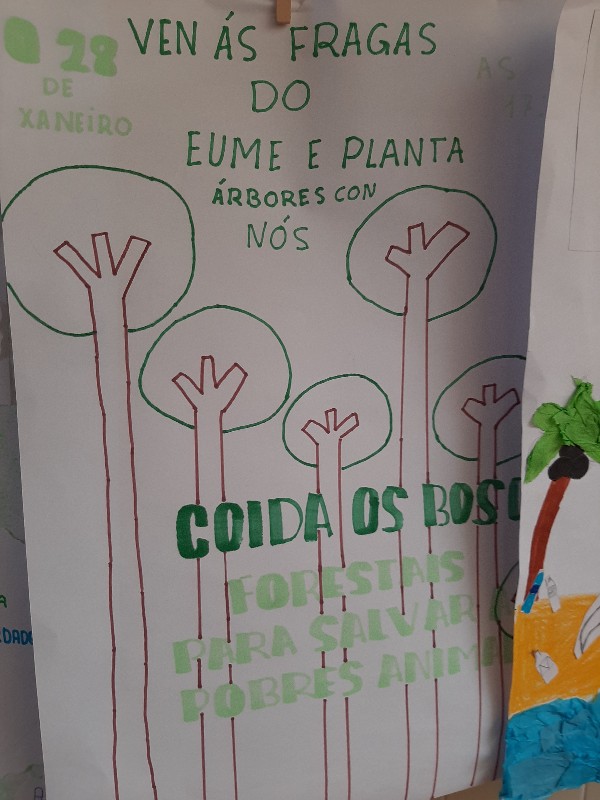 O 28
DE
XANEIRO
VEN ÁS FRAGAS
DO
EUME E PLANTA
ÁRBORES CON
NÓS
AS
17
COIDA OS BOSC
FORESTAIS
PARA SALVAR
POBRES ANIM